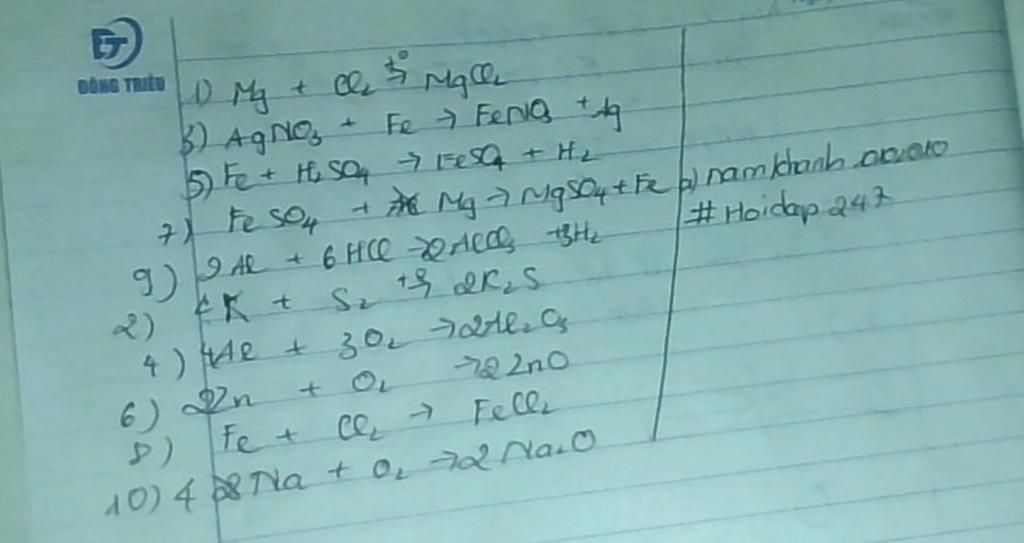 ĐÔNG TRIỀU
1) Mg + Cl2 t° → MgCl2
3) AgNO3 + Fe → FeNO3 + Ag
5) Fe + H2SO4 → FeSO4 + H2
7) FeSO4 + Mg → MgSO4 + Fe
9) 2Al + 6HCl → 2AlCl3 + 3H2
2) 4K + S2 t° → 2K2S
4) 4Al + 3O2 → 2Al2O3
6) 2Zn + O2 → 2ZnO
8) Fe + Cl2 → FeCl2
10) 4 Na + O2 → 2Na2O
# Hoidap 247